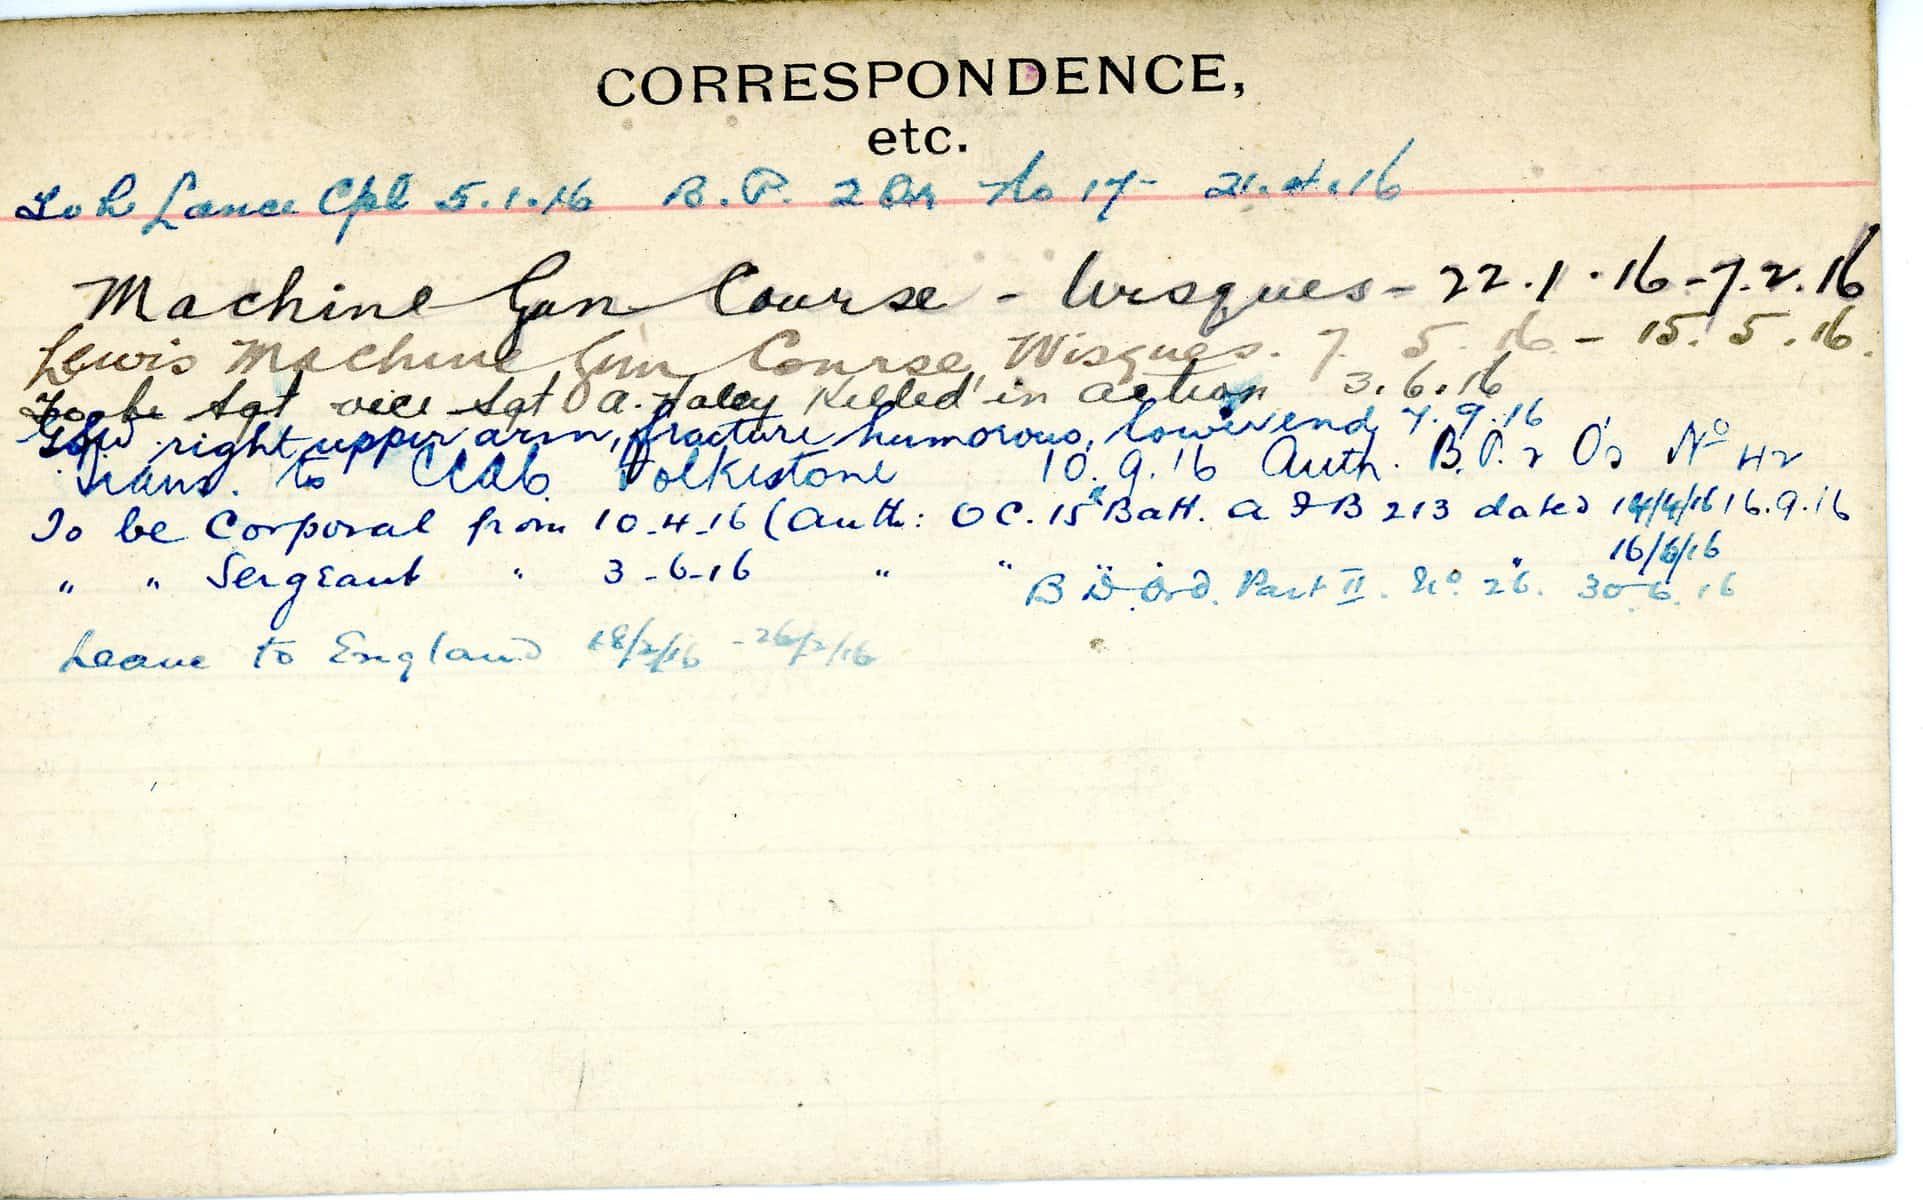 CORRESPONDENCE,
etc.
To be Lance Cpl 5.1.16 B.P. 2 Or No 17 21.4.16
Machine Gun Course - Wisques - 22.1.16 - 7.2.16
Lewis Machine Gun Course, Wisques. 7. 5. 16 - 15. 5. 16.
To be Sgt vice Sgt A. Haley Killed in action 3.6.16
GSW right upper arm, fracture humorous, lower end 7.9.16
Trans. to Folkestone 10.9.16 Auth. B.P. 2 O's No 42
To be Corporal from 10-4-16 (Auth: OC. 15th Batt. A & B 213 dated 14/4/16 16.9.16
" " Sergeant " 3-6-16 " " " " 16/6/16
B D Ord. Part II. No. 26. 30.6.16
Leave to England 18/2/16 - 26/2/16